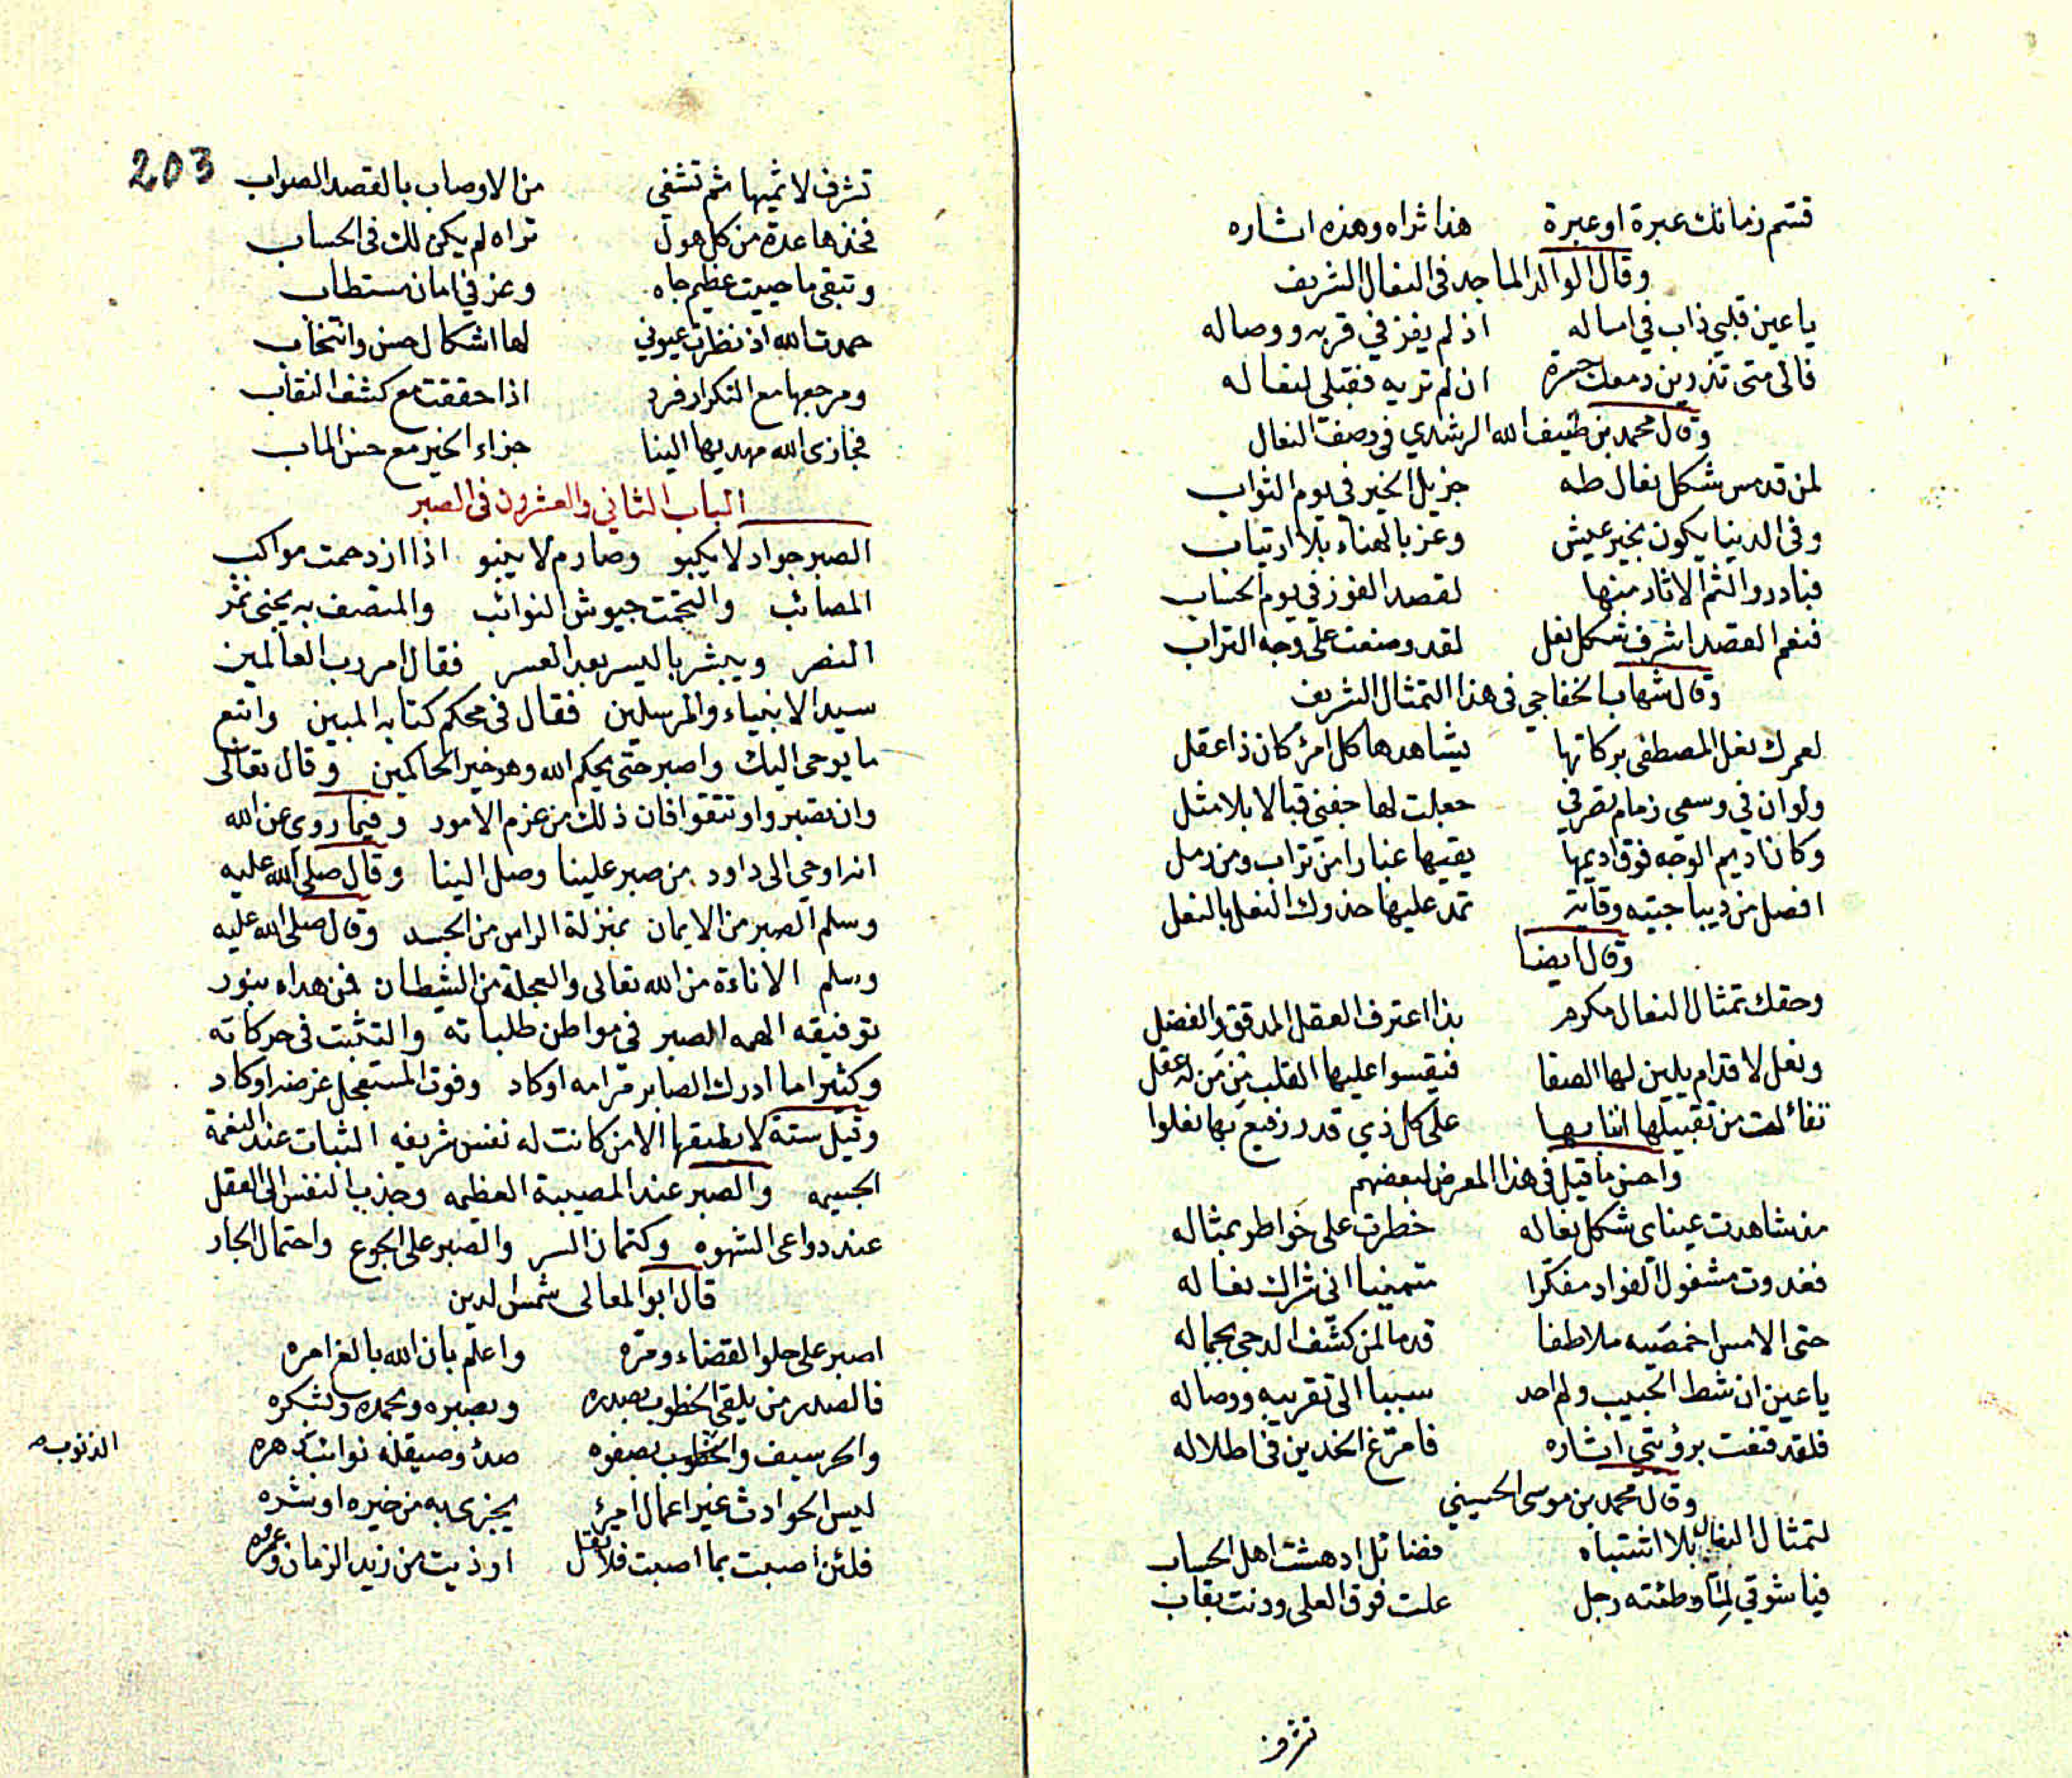 قسم زمانك عبرة او عبرة هذا ثراه وهذه اشاره
وقال الوالد الماجد في النعال الشريف
يا عين قلبي ذاب في امساله اذ لم يفز في قربه ووصاله
فالى متى تذرين دمعك حسرة ان لم تريه فقبلي لنعاله
وقال محمد بن ضيف الله الرشدي في وصف النعال
لمن قد مس شكل نعال طه جزيل الخير في يوم الثواب
وفي الدنيا يكون بخير عيش وعز بالهناء بلا ارتياب
فبادر والثم الاثار منها لقصد الفوز في يوم الحساب
فنعم القصد اشرف شكل نعل لقد وضعت على وجه التراب
وقال شهاب الخفاجي في هذا التمثال الشريف
لعمرك نعل المصطفى بركاتها يشاهدها كل امرئ كان ذا عقل
ولو ان في وسعي زمام تصرفي جعلت لها جفني قبالا بلا مثل
وكان اديم الوجه فوق اديمها يقيها غبارا من تراب ومن رمل
افصل من ديباجتيه وقاية تمد عليها حذوك النعل بالنعل
وقال ايضا
وحقك تمثال النعال مكرم بذا اعترف العقل المدقق والفضل
ونعل لاقدام يلين لها الصفا فيقسوا عليها القلب من من له عقل
تفائلت من تقبيلها اننا بها على كل ذي قدر رفيع بها نعلوا
واحسن ما قيل في هذا المعرض لبعضهم
مذ شاهدت عيناي شكل نعاله خطرت على خواطر بمثاله
فغدوت مشغول الفواد مفكرا متمنيا اني شراك نعاله
حتى الامس اخمصيه ملاطفا قدما لمن كشف الدجى بجماله
يا عين ان شط الحبيب ولم اجد سببا الى تقريبه ووصاله
فلقد قنعت برؤيتي اثاره فامرغ الخدين في اطلاله
وقال محمد بن موسى الحسيني
لتمثال النعال بلا اشتباه فضائل ادهشت اهل الحساب
فيا شوقي لما وطئته رجل علت فوق العلى ودنت بقاب
تشرف
203
تشرف لاثميها ثم تشفي من الاوصاب بالقصد الصواب
فخذها عدة من كل هول تراه لم يكن لك في الحساب
وتبقى ما حييت عظيم جاه وعز في امان مستطاب
حمدت الله اذ نظرت عيوني لها اشكال حسن وانتخاب
ومرجعها مع التكرار فرد اذا حققت مع كشف النقاب
فجازى الله مهديها الينا جزاء الخير مع حسن الماب
الباب الثاني والعشرون في الصبر
الصبر جواد لا يكبو وصارم لا ينبو اذا ازدحمت مواكب
المصائب والتجمت جيوش النوائب والمتصف به يجني ثمر
النصر ويبشر باليسر بعد العسر فقال امر رب العالمين
سيد الانبياء والمرسلين فقال في محكم كتابه المبين واتبع
ما يوحى اليك واصبر حتى يحكم الله وهو خير الحاكمين وقال تعالى
وان تصبروا وتتقوا فان ذلك من عزم الامور وفيما روي عن الله
انه اوحى الى داود من صبر علينا وصل الينا وقال صلى الله عليه
وسلم الصبر من الايمان بمنزلة الراس من الجسد وقال صلى الله عليه
وسلم الاناءة من الله تعالى والعجلة من الشيطان فمن هداه بنور
توفيقه الهمه الصبر في مواطن طلباته والتثبت في حركاته
وكثيرا ما ادرك الصابر مرامه اوكاد وفوت المستعجل غرضه اوكاد
وقيل ستة لا يطيقها الا من كانت له نفس شريفه الثبات عند النعمة
الجسيمه والصبر عند المصيبة العظيمه وجذب النفس الى العقل
عند دواعى الشهوه وكتمان السر والصبر على الجوع واحتمال الجار
قال ابو المعالى شمس الدين
اصبر على حلو القضاء ومره واعلم بان الله بالغ امره
فالصدر من يلقى الخطوب بصدره وبصبره وبحمده وبشكره
والحر سيف والخطوب بصفوه صدأ وصيقله نوائب دهره
الذنوب
ليس الحوادث غير اعمال امرئ يجزى به من خيره او شره
فلئن اصبت بما اصبت فلا تقل اوذيت من زيد الزمان وعمره